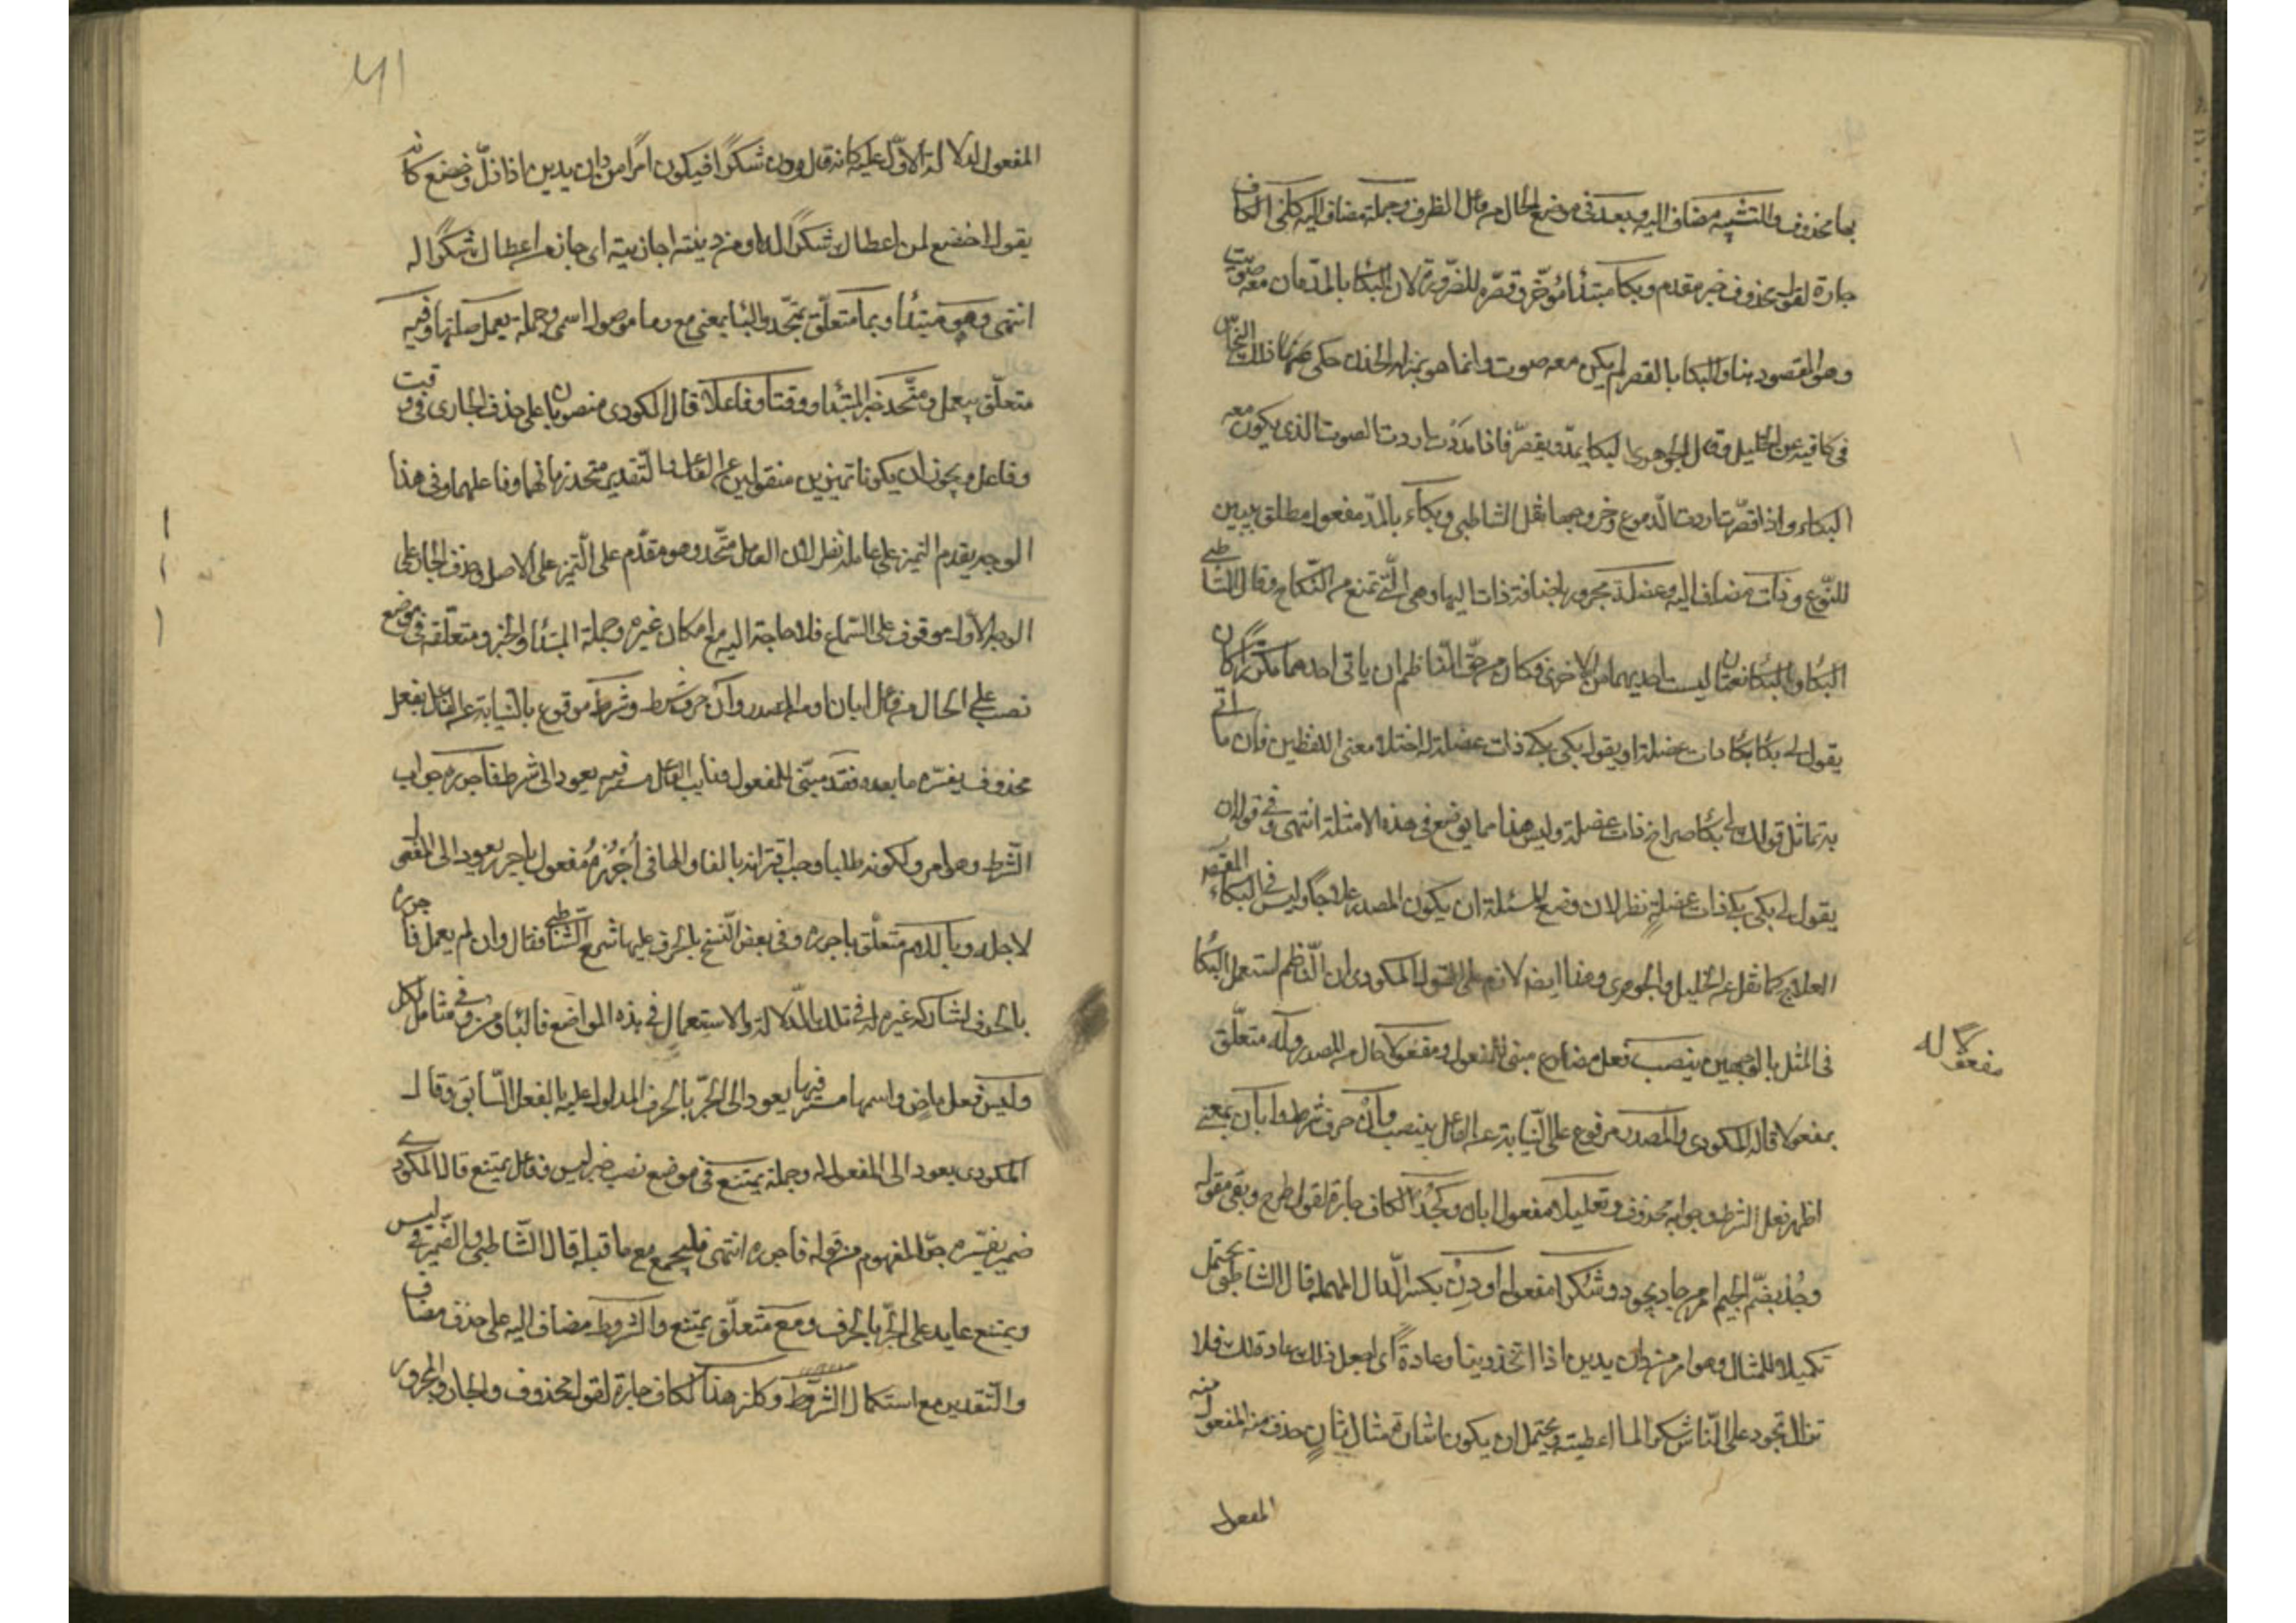 بها محذوف والتشبيه مضاف اليه وبعد في موضع الحال من فاعل الظرف وجملة مضاف اليه كلني الكاف
جارة لقول محذوف خبر مقدم وبكا مبتدأ مؤخر وقصره للضرورة لان البكا بالمد ما كان معه صوت
وهو المقصود هنا والبكا بالقصر لم يكن معه صوت وانما هو بمنزلة الحزن حكى عنهما ذلك النحاس
في كافيه عن الخليل وقال الجوهري البكا يمد ويقصر فاذا مددت اردت الصوت الذي يكون معه
البكاء واذا قصرت اردت الدموع وخروجها نقل الشاطبي وبكاء بالمد مفعول مطلق يبين
للنوع وذات مضاف اليه وعضلة مجرور باضافة ذات اليها وهي التي تمنع من النكاح وقال الشاطبي
البكا والبكا نعتان ليست احديهما من الاخرى فكان من حق الناظم ان ياتي احدهما مكررا كان
يقول لي بكا بكا ذات عضلة او يقول بكى بكى ذات عضلة لاختلا معنى اللفظين فان ما اتى
به تماثل قولك لي بكا صراخ ذات عضلة وليس هذا مما يوضع في هذه الامثلة انتهى وفي قوله ان
يقول لي بكى بكى ذات عضلة نظر لان وضع المسئلة ان يكون المصدر علاجا وليس في البكاء المقصر
العلاج كما نقل عن الخليل والجوهري وهذا ايضا لازم على قول المكودي ان الناظم استعمل البكا
في المثل بالوجهين ينصب فعل مضارع مبني للمفعول ومفعولا حال من المصدر وله متعلق
مفعولا له
بمفعولا قاله المكودي والمصدر مرفوع على النيابة عن الفاعل بينصب وان حرف شرط وابان بمعنى
اظهر فعل الشرط وجوابه محذوف وتعليلا مفعول ابان وكجد الكاف جارة لقول طرح وبقي مقوله
وجد بضم الجيم امر من جاد يجود وشكرا مفعول له ودن بكسر الدال المهملة قال الشاطبي يحتمل
تكميلا للمثال وهو امر من دان يدين اذا اتخذ دينا وعادة اي اجعل ذلك عادة لك فلا
تزال تجود على الناس شكرا لما اعطيته ويحتمل ان يكون اشارة مثال ثان حذف منه المفعول
المفعول
المفعول له لدلالة الاول عليه كانه قال ودن شكرا فيكون امرا من دان يدين اذا ذل وخضع كانه
يقول اخضع لمن اعطاك شكرا له او من دينته اجازيته اي جاز من اعطاك شكرا له
انتهى وهو مبتدا وبما متعلق بمتحد والبا بمعنى مع وما موصول اسمي وجملة يعمل صلتها وفيه
متعلق بيعمل ومتحد خبر المبتدا ووقتا وفاعلا قال المكودي منصوبان على حذف الجار اي في وقت
وفاعل ويجوز ان يكونا تمييزين منقولين عن الفاعل والتقدير متحد زمانهما وفاعلهما وفي هذا
الوجه يقدم التميز على عامله نظر لان العامل متحد وهو مقدم على التميز على الاصل وحذف الجار على
الوجه الاول موقوف على السماع فلا حاجة اليه مع امكان غيره وجملة المبتدا والخبر ومتعلقه في موضع
نصب على الحال من فاعل ابان او من المصدر وان حرف شرط وشرط مرفوع بالنيابة عن الفاعل بفعل
محذوف يفسره ما بعده فقد مبني للمفعول ونايب الفاعل مستتر فيه يعود الى شرط فاجرره جواب
الشرط وهو امر ولكونه طلبا وجب اقترانه بالفا والها في اجرره مفعول باجرر يعود الى المفعول
لاجله وباللام متعلق باجرره وفي بعض النسخ بالحرف عليها شرح الشاطبي فقال وان لم يعمل فاجرره
بالحرف لمشاركة غيره له في تلك الدلالة والاستعمال في هذه المواضع فالبا ومن وفي مثال لكل
وليس فعل ماض واسمها مستتر فيها يعود الى الجر بالحرف المدلول عليه بالفعل السابق وقال
المكودي يعود الى المفعول له وجملة يمتنع في موضع نصب خبر ليس وفاعل يمتنع قال المكودي
ضمير يفسره جر المفهوم من قوله فاجرره انتهى فليجمع مع ما قبله قال الشاطبي والضمير في ليس
ويمتنع عايد على الجر بالحرف ومع متعلق بيمتنع والشروط مضاف اليه على حذف مضاف
والتقدير مع استكمال الشروط وكلزهد الكاف جارة لقول محذوف والجار والمجرور